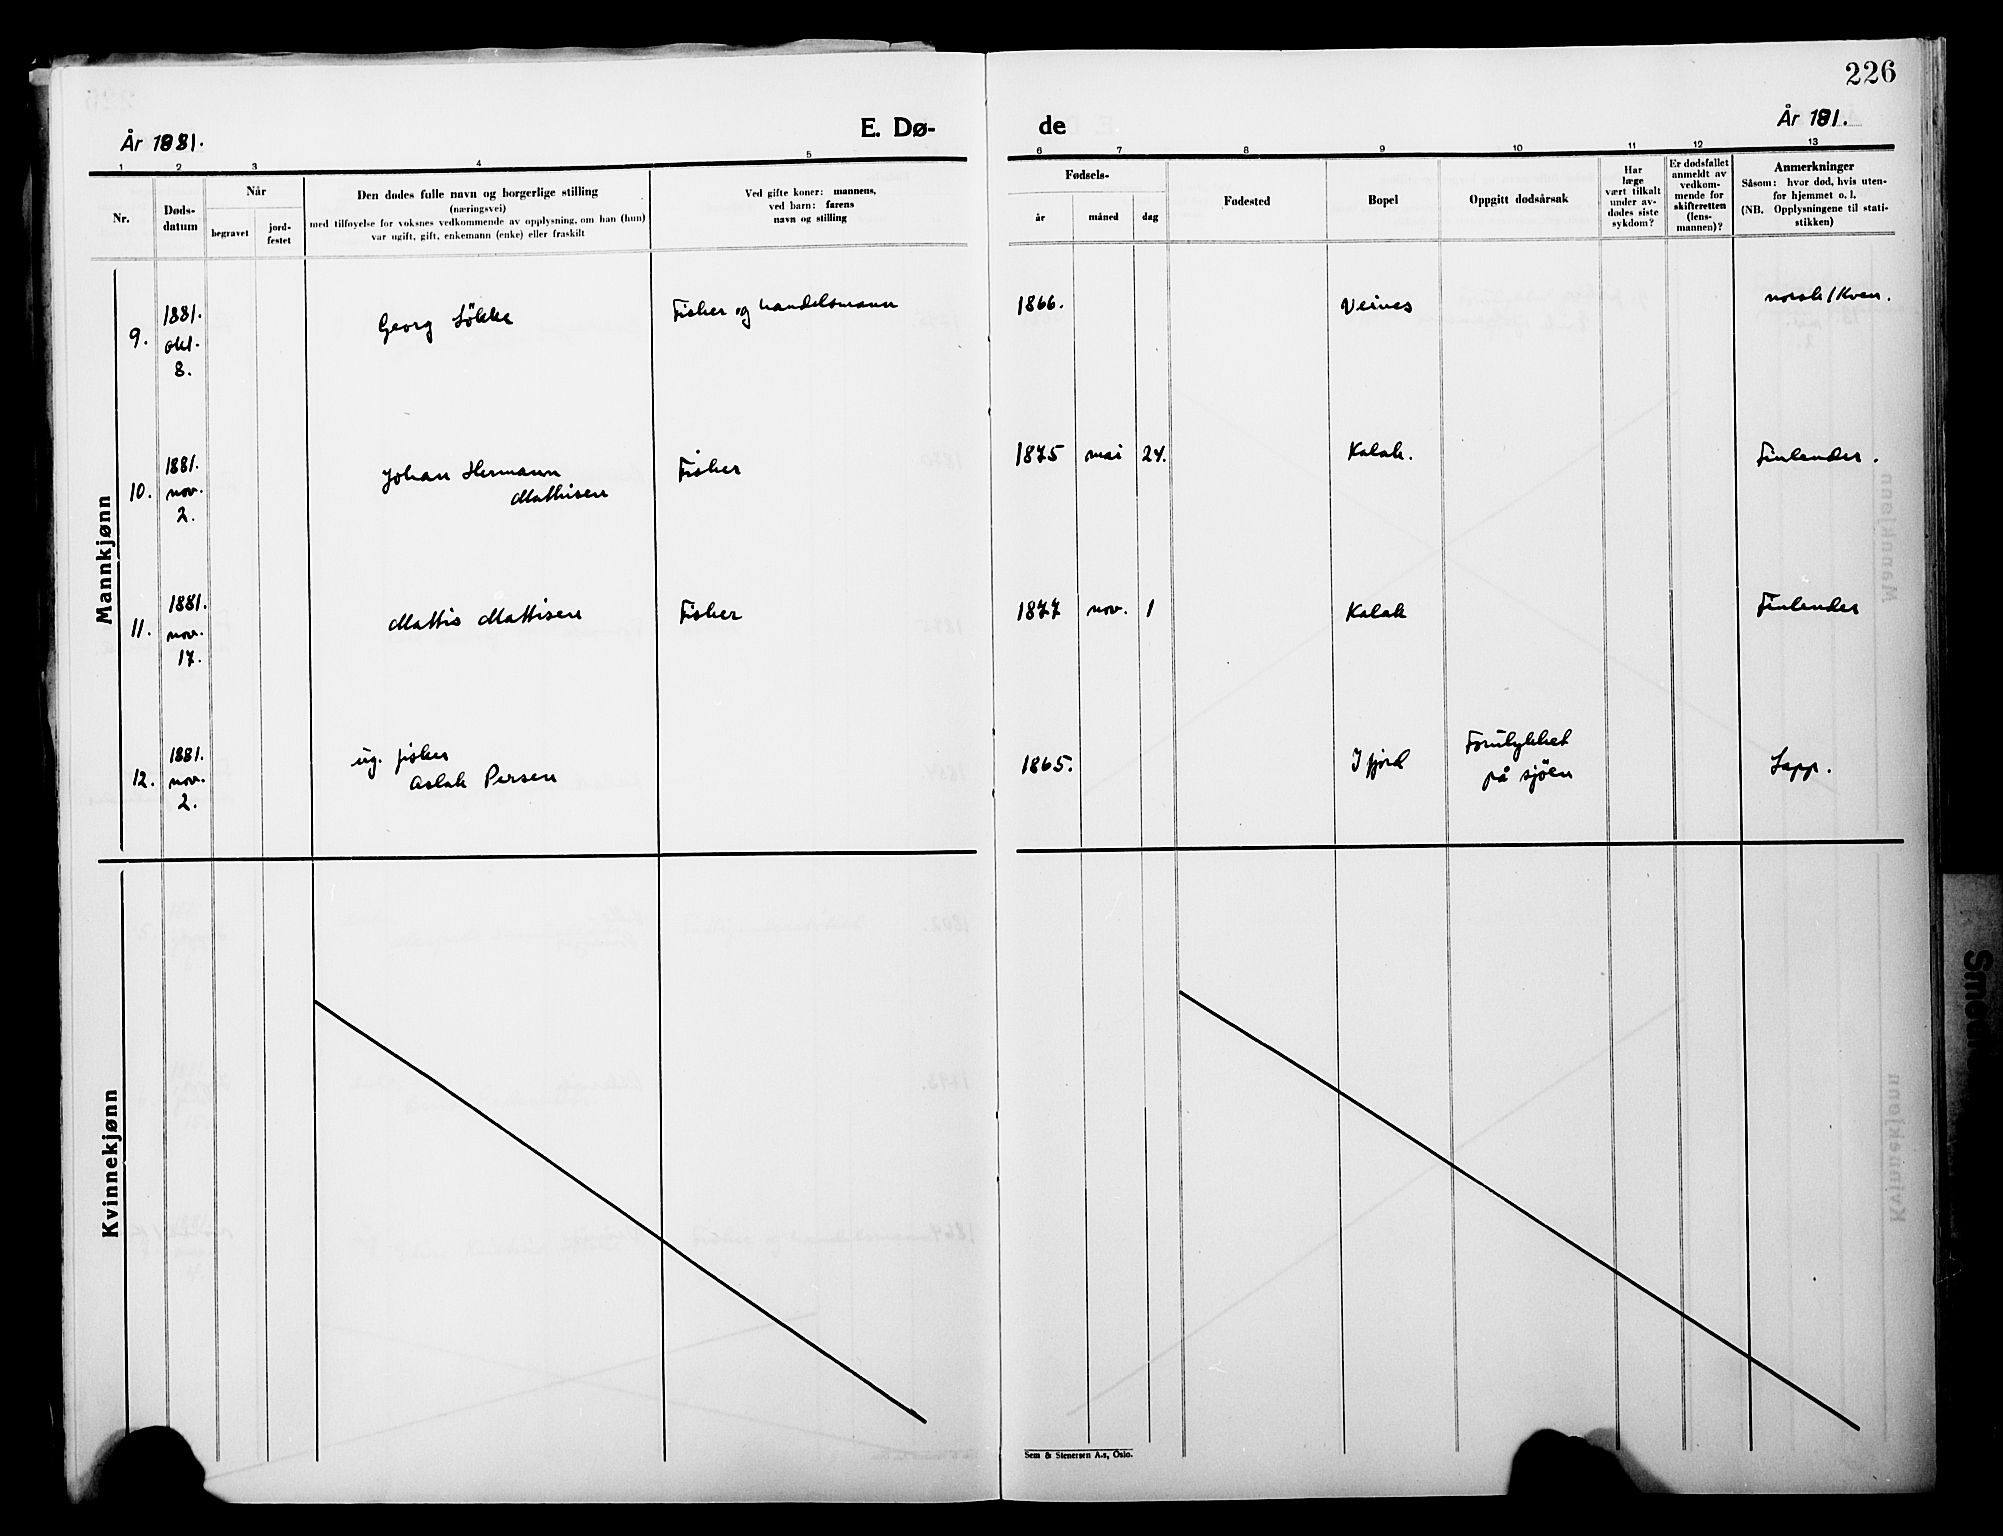 226
År 1881.
E. Dø-
de
År 181.
1 2 3 4 5 6 7 8 9 10 11 12 13
Nr.
Døds-
datum
Når
begravet
jord-
festet
Den dødes fulle navn og borgerlige stilling
(næringsvei)
med tilføyelse for voksnes vedkommende av opplysning, om han (hun)
var ugift, gift, enkemann (enke) eller fraskilt
Ved gifte koner: mannens,
ved barn: farens
navn og stilling
Fødsels-
år
måned
dag
Fødested
Bopel
Oppgitt dødsårsak
Har
læge
vært tilkalt
under av-
dødes siste
sykdom?
Er dødsfallet
anmeldt av
vedkom-
mende for
skifteretten
(lens-
mannen)?
Anmerkninger
Såsom: hvor død, hvis uten-
for hjemmet o. l.
(NB. Opplysningene til stati-
stikken)
Mannkjønn
9.
1881.
okt.
8.
Georg Lökke
Fisker og handelsmann
1866.
Veines
norsk/Kven.
10.
1881.
nov.
2.
Johan Hermann
Mathisen
Fisker
1875 mai 24.
Kalak.
Finlender.
11.
1881.
nov.
17.
Mattis Mattisen
Fisker
1877 nov. 1
Kalak
Finlender
12.
1881.
nov.
2.
ug. fisker
Aslak Persen
1865.
Ifjord
Forulykket
på sjöen
Lapp.
Kvinnekjønn
Sem & Stenersen A.s, Oslo.